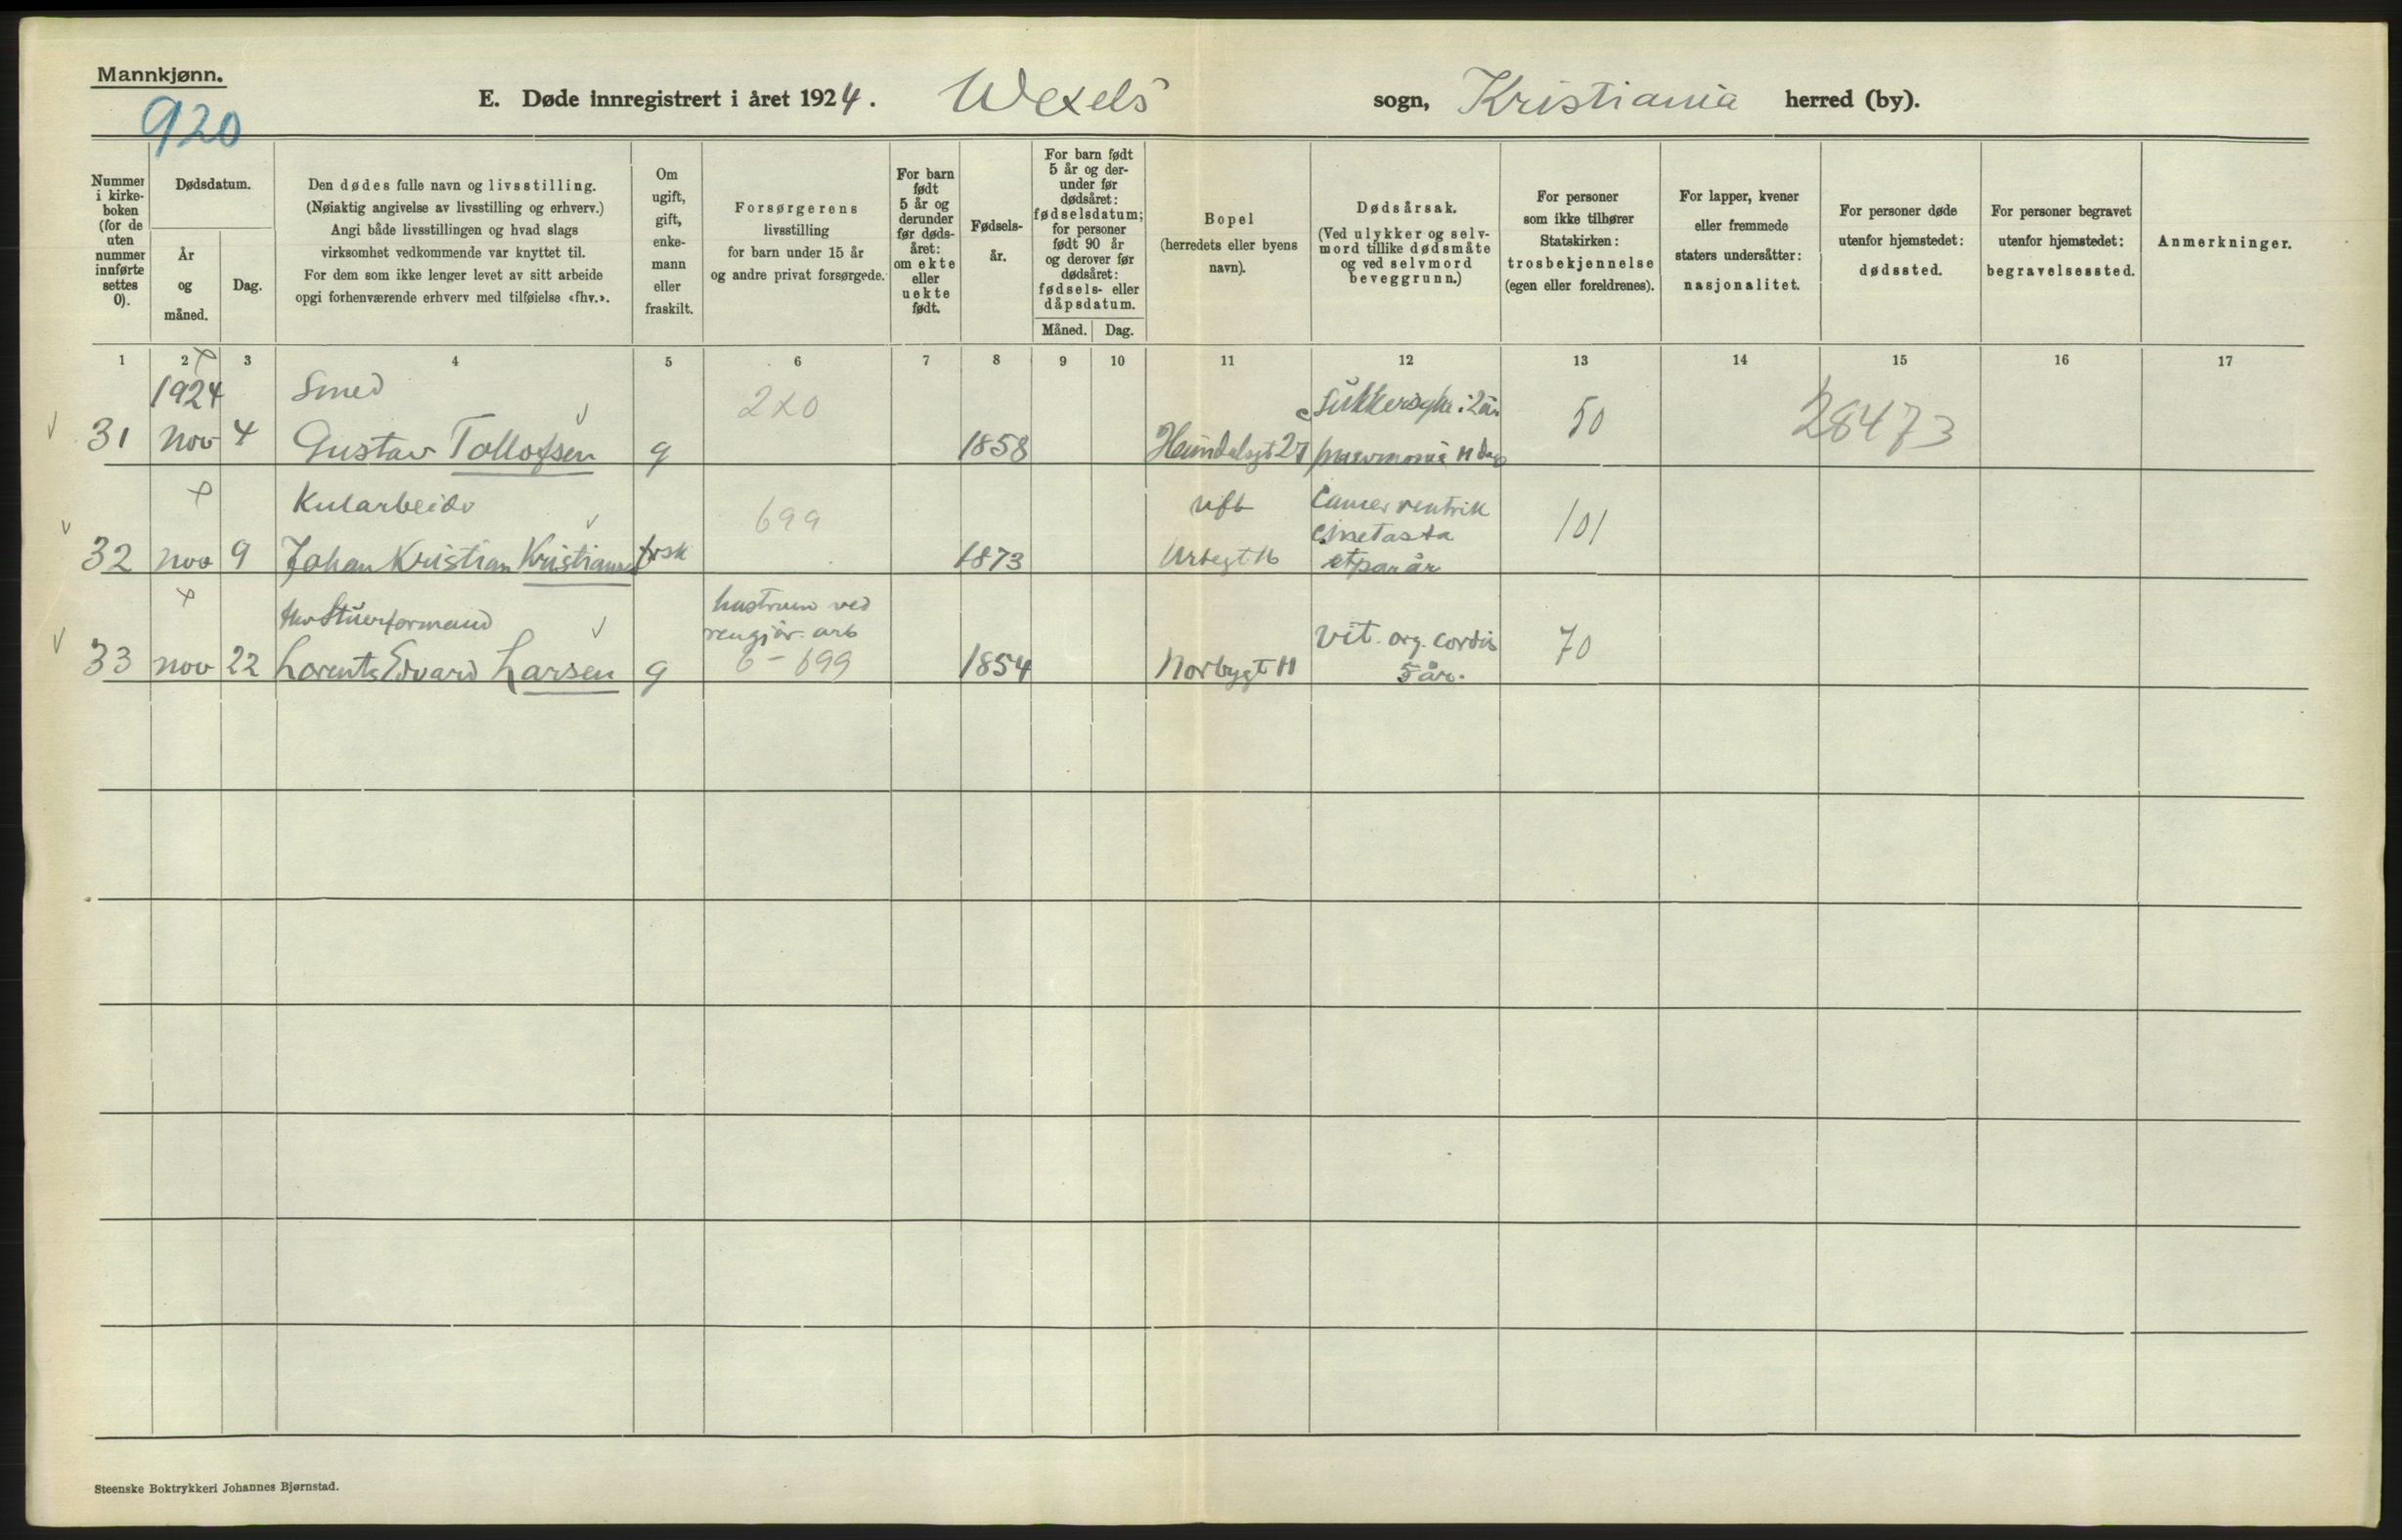 Mannkjønn.
920
E. Døde innregistrert i året 1924. Wexels sogn, Kristiania herred (by).
Nummer i kirkeboken (for de uten nummer innførte settes 0).
Dødsdatum.
År og måned.
Dag.
Den dødes fulle navn og livsstilling.
(Nøiaktig angivelse av livsstilling og erhverv.)
Angi både livsstillingen og hvad slags
virksomhet vedkommende var knyttet til.
For dem som ikke lenger levet av sitt arbeide
opgi forhenværende erhverv med tilføielse «fhv.».
Om ugift, gift, enkemann eller fraskilt.
Forsørgerens
livsstilling
for barn under 15 år
og andre privat forsørgede.
For barn født 5 år og derunder før dødsåret: om ekte eller uekte født.
Fødselsår.
For barn født 5 år og derunder før dødsåret: fødselsdatum; for personer født 90 år og derover før dødsåret: fødsels- eller dåpsdatum.
Måned. Dag.
Bopel
(herredets eller byens
navn).
Dødsårsak.
(Ved ulykker og selvmord tillike dødsmåte og ved selvmord beveggrunn.)
For personer
som ikke tilhører
Statskirken:
trosbekjennelse
(egen eller foreldrenes).
For lapper, kvener
eller fremmede
staters undersåtter:
nasjonalitet.
For personer døde
utenfor hjemstedet:
dødssted.
For personer begravet
utenfor hjemstedet:
begravelsessted.
Anmerkninger.
1 2 3 4 5 6 7 8 9 10 11 12 13 14 15 16 17
1924 Smed 220 50 28473
31 Nov 4 Gustav Tollofsen g 1858 Heimdalsgt 27
Kularbeider 699 101
32 nov 9 Johan Kristian frsk 1873 Urtegt 16 et par år
fhv Stuerformand hustruen ved
rengjør. arb
Vit. org. cordis 70
33 nov 22 Lorents Edvard Larsen g 6-699 1854 Norbygt 11 5 år.
Steenske Boktrykkeri Johannes Bjørnstad.